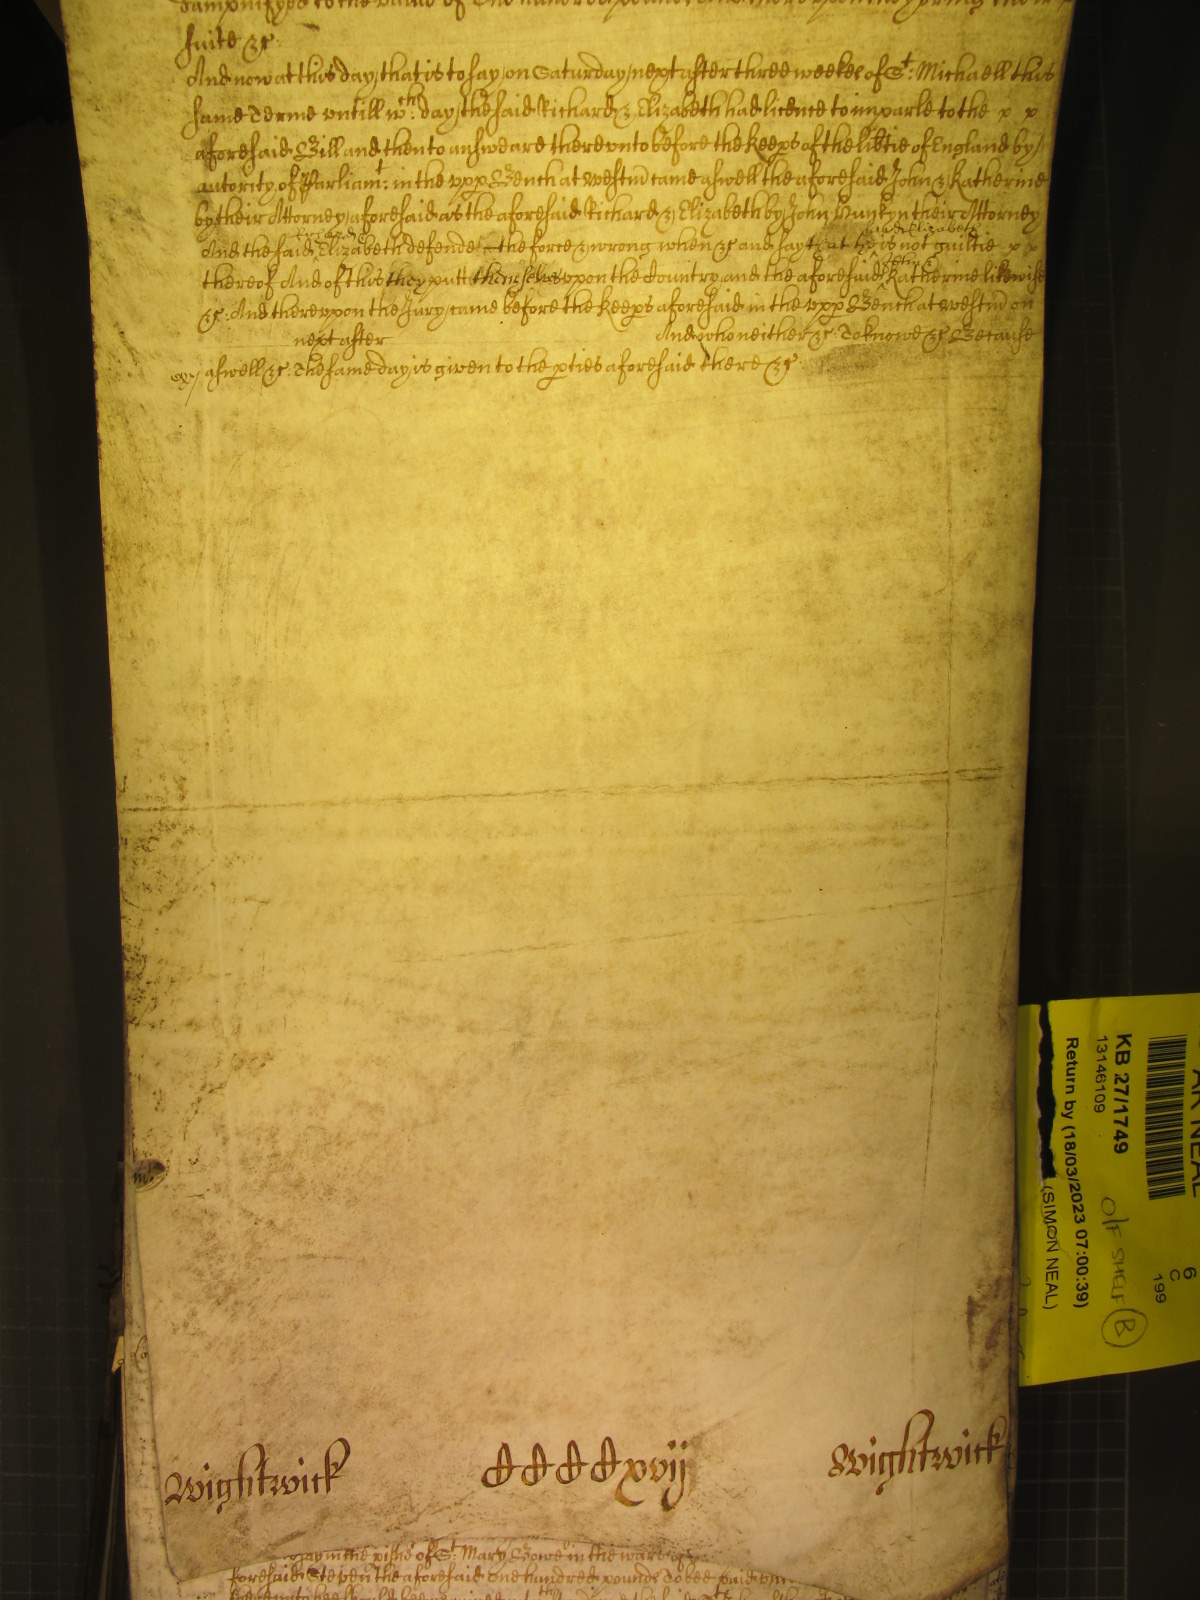 dampnifyed to the value of One hundred pounds, And thereupon they bring their
suite &c.
And now at this day, that is to say, on Saturday next after three weekes of St. Michaell this
same Terme untill wch. day the said Richard & Elizabeth had licence to imparle to the x x
aforesaid Bill and then to answeare thereunto before the Keeps of the libtie of England by
autority of Parliamt. in the upp Bench at Westm came aswell the aforesaid John & Katherine
by their Attorney aforesaid as the aforesaid Richard & Elizabeth by John their Attorney
And the said Elizabeth defende the force & wrong when &c and say that is not guiltie x x
and Elizabeth
thereof And of this they putt themselves upon the Country and the aforesaid Katherine likewise
&c. And thereupon the Jury came before the Keeps aforesaid in the upp Bench at Westm on
next after And who neither &c. To knowe &c Because
aswell &c. The same day is given to the pties aforesaid there &c.
Wightwick CCCCxvij Wightwick
in the pish of St. Mary Bowe in the ward
foresaid Stepen the aforesaid one hundred pounds To bee paid
KB 27/1749
13146109
Return by (18/03/2023 07:00:39)
(SIMON NEAL)
O/F SHELF B
6
C
199